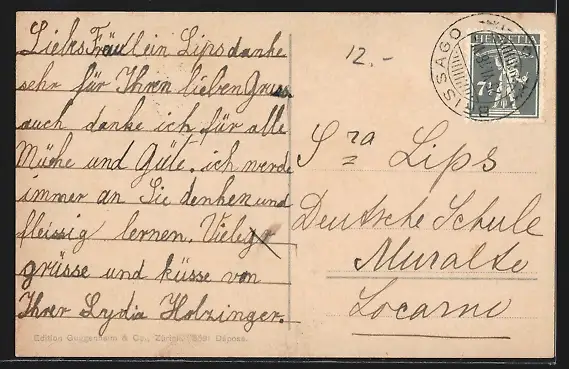 Liebes Fräulein Lips danke
sehr für Ihren lieben Gruss
auch danke ich für alle
Mühe und Güte. ich werde
immer an Sie denken und
fleissig lernen. Viele
grüsse und küsse von
Ihrer Lydia Holzinger.
Edition Guggenheim & Co., Zürich. Déposé.
12.-
HELVETIA
7½
BRISSAGO
Sra Lips
Deutsche Schule
Muralte
Locarno